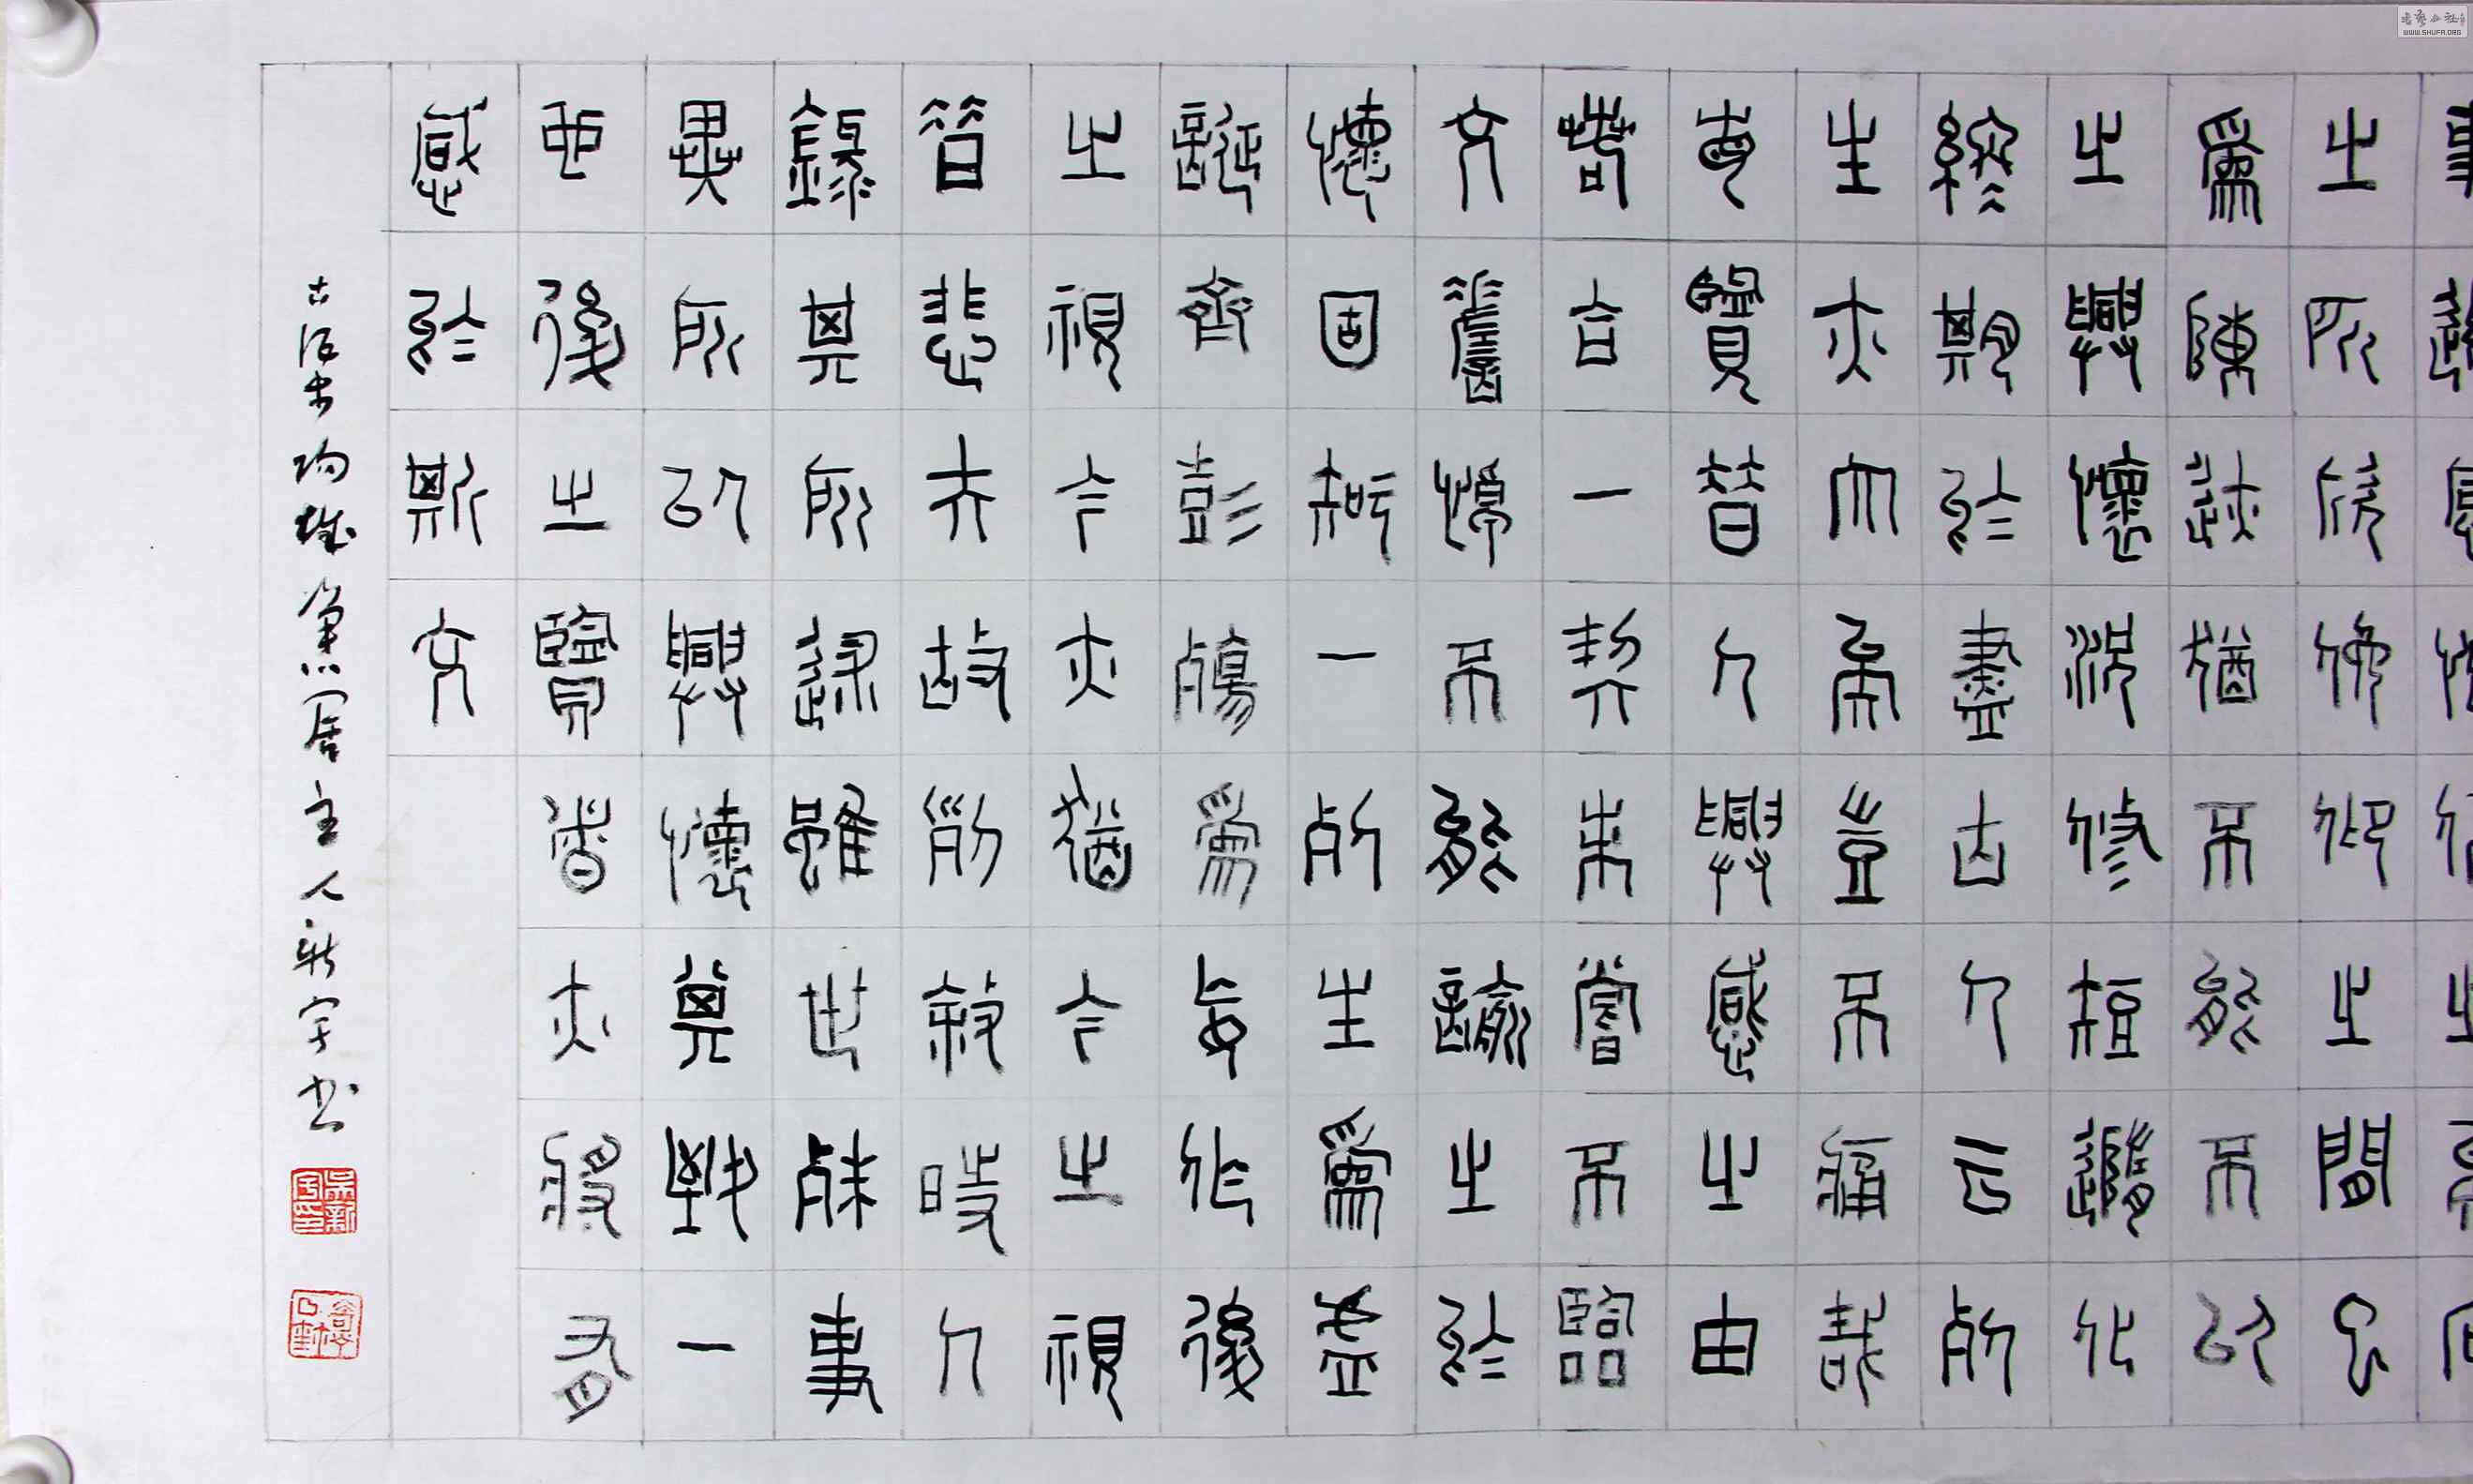 事遷感慨係之矣向
之所欣俛仰之間已
為陳迹猶不能不以
之興懷況修短隨化
終期於盡古人云死
生亦大矣豈不痛哉
每覽昔人興感之由
若合一契未嘗不臨
文嗟悼不能喻之於
懷固知一死生為虛
誕齊彭殤為妄作後
之視今亦猶今之視
昔悲夫故列敘時人
錄其所述雖世殊事
異所以興懷其致一
也後之覽者亦將有
感於斯文
居主人新宇书
吳新宇印
WWW.SHUFA.ORG